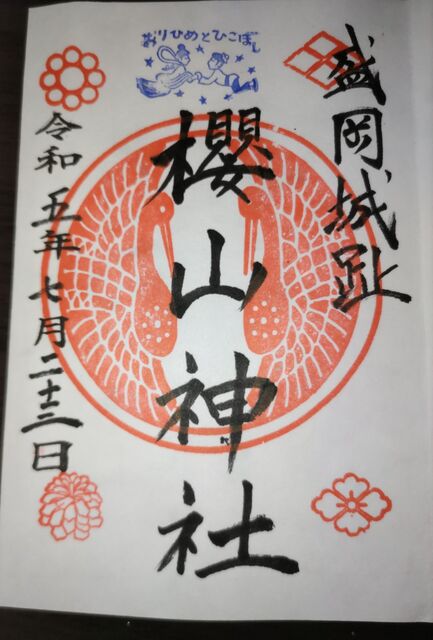 おりひめとひこぼし
盛岡城趾
櫻山神社
令和五年七月二十三日